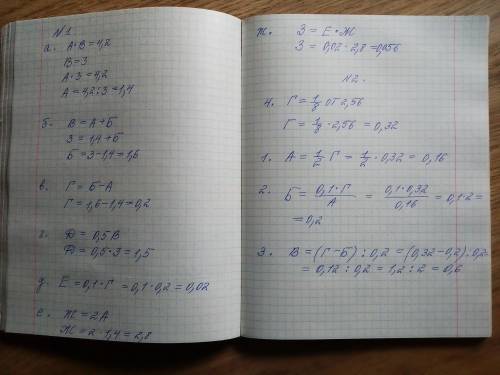 N1
а. А·В=4,2
В=3
А·3=4,2
А=4,2:3=1,4
б. В=А+Б
3=1,4+Б
Б=3-1,4=1,6
в. Г=Б-А
Г=1,6-1,4=0,2
г. Д=0,5В
Д=0,5·3=1,5
д. Е=0,1·Г=0,1·0,2=0,02
е. Ж=2А
Ж=2·1,4=2,8
ж. З=Е·Ж
З=0,02·2,8=0,056
N2.
4. Г=1/8 от 2,56
Г=1/8·2,56=0,32
1. А=1/2 Г=1/2·0,32=0,16
2. Б=0,1·Г/А=0,1·0,32/0,16=0,1·2=
=0,2
3. В=(Г-Б):0,2=(0,32-0,2):0,2=
=0,12:0,2=1,2:2=0,6